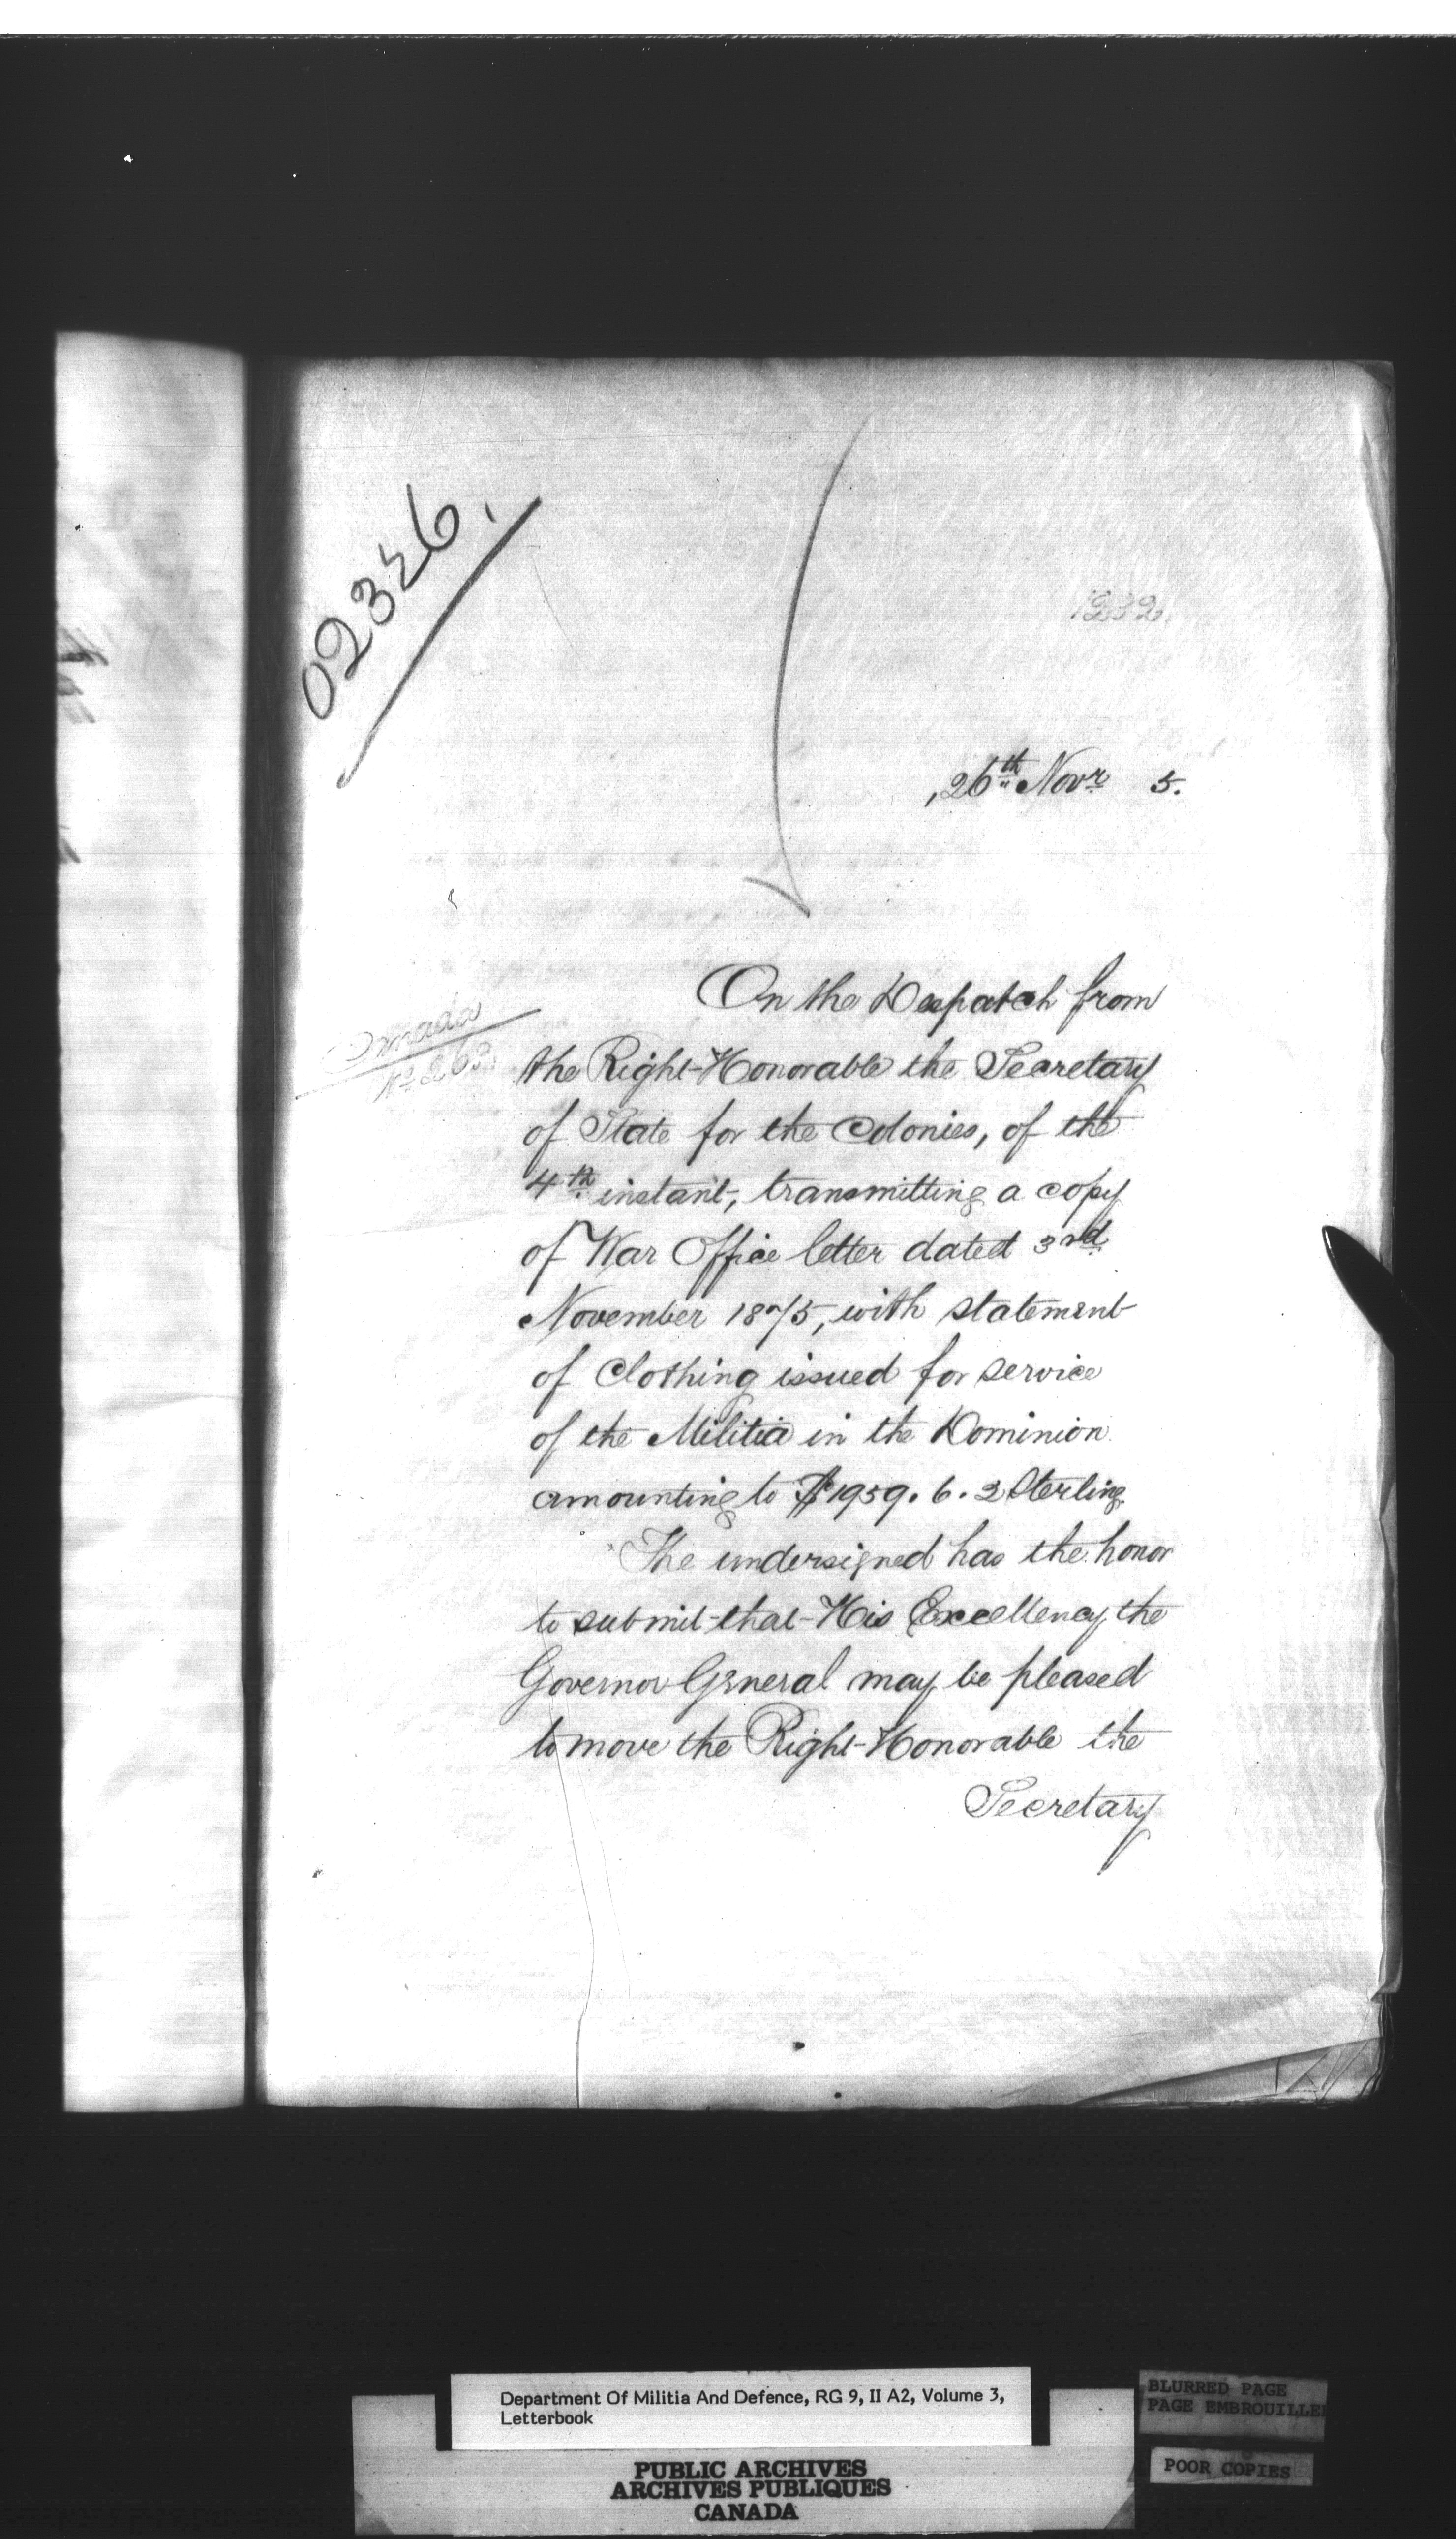 02326.
1232.
26th Novr 5.
Canada
No 263.
On the Despatch from
the Right Honorable the Secretary
of State for the Colonies, of the
4th instant, transmitting a copy
of War Office letter dated 3rd
November 1875, with statement
of Clothing issued for service
of the Militia in the Dominion
amounting to £1959.6.2 Sterling
The undersigned has the honor
to submit that His Excellency the
Governor General may be pleased
to move the Right Honorable the
Secretary
Department Of Militia And Defence, RG 9, II A2, Volume 3,
Letterbook
PUBLIC ARCHIVES
ARCHIVES PUBLIQUES
CANADA
BLURRED PAGE
PAGE EMBROUILLE
POOR COPIES